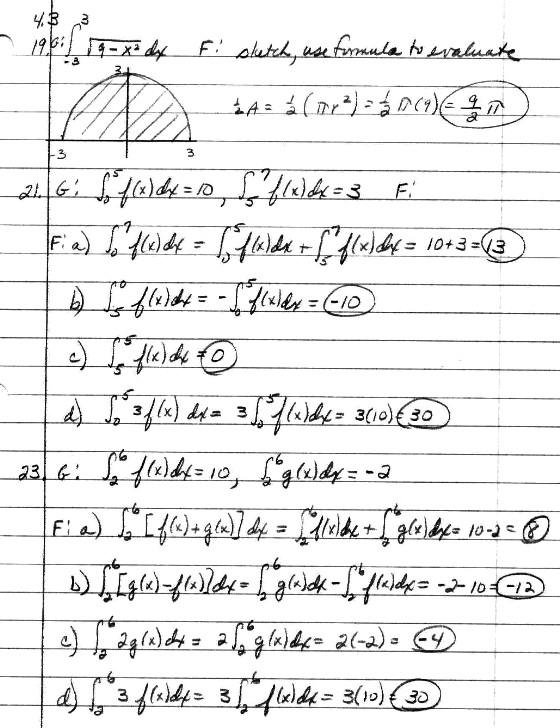 4.3
19. G: ∫₋₃³ √(9-x²) dx F: sketch, use formula to evaluate
3
½A = ½(πr²) = ½π(9) = 9/2 π
-3 3
21. G: ∫₀⁵ f(x)dx = 10, ∫₅⁷ f(x)dx = 3 F:
F: a) ∫₀⁷ f(x)dx = ∫₀⁵ f(x)dx + ∫₅⁷ f(x)dx = 10+3 = 13
b) ∫₅⁰ f(x)dx = -∫₀⁵ f(x)dx = -10
c) ∫₅⁵ f(x)dx = 0
d) ∫₀⁵ 3f(x) dx = 3∫₀⁵ f(x)dx = 3(10) = 30
23. G: ∫₂⁶ f(x)dx = 10, ∫₂⁶ g(x)dx = -2
F: a) ∫₂⁶ [f(x)+g(x)] dx = ∫₂⁶ f(x)dx + ∫₂⁶ g(x)dx = 10-2 = 8
b) ∫₂⁶ [g(x)-f(x)]dx = ∫₂⁶ g(x)dx - ∫₂⁶ f(x)dx = -2-10 = -12
c) ∫₂⁶ 2g(x)dx = 2∫₂⁶ g(x)dx = 2(-2) = -4
d) ∫₂⁶ 3f(x)dx = 3∫₂⁶ f(x)dx = 3(10) = 30